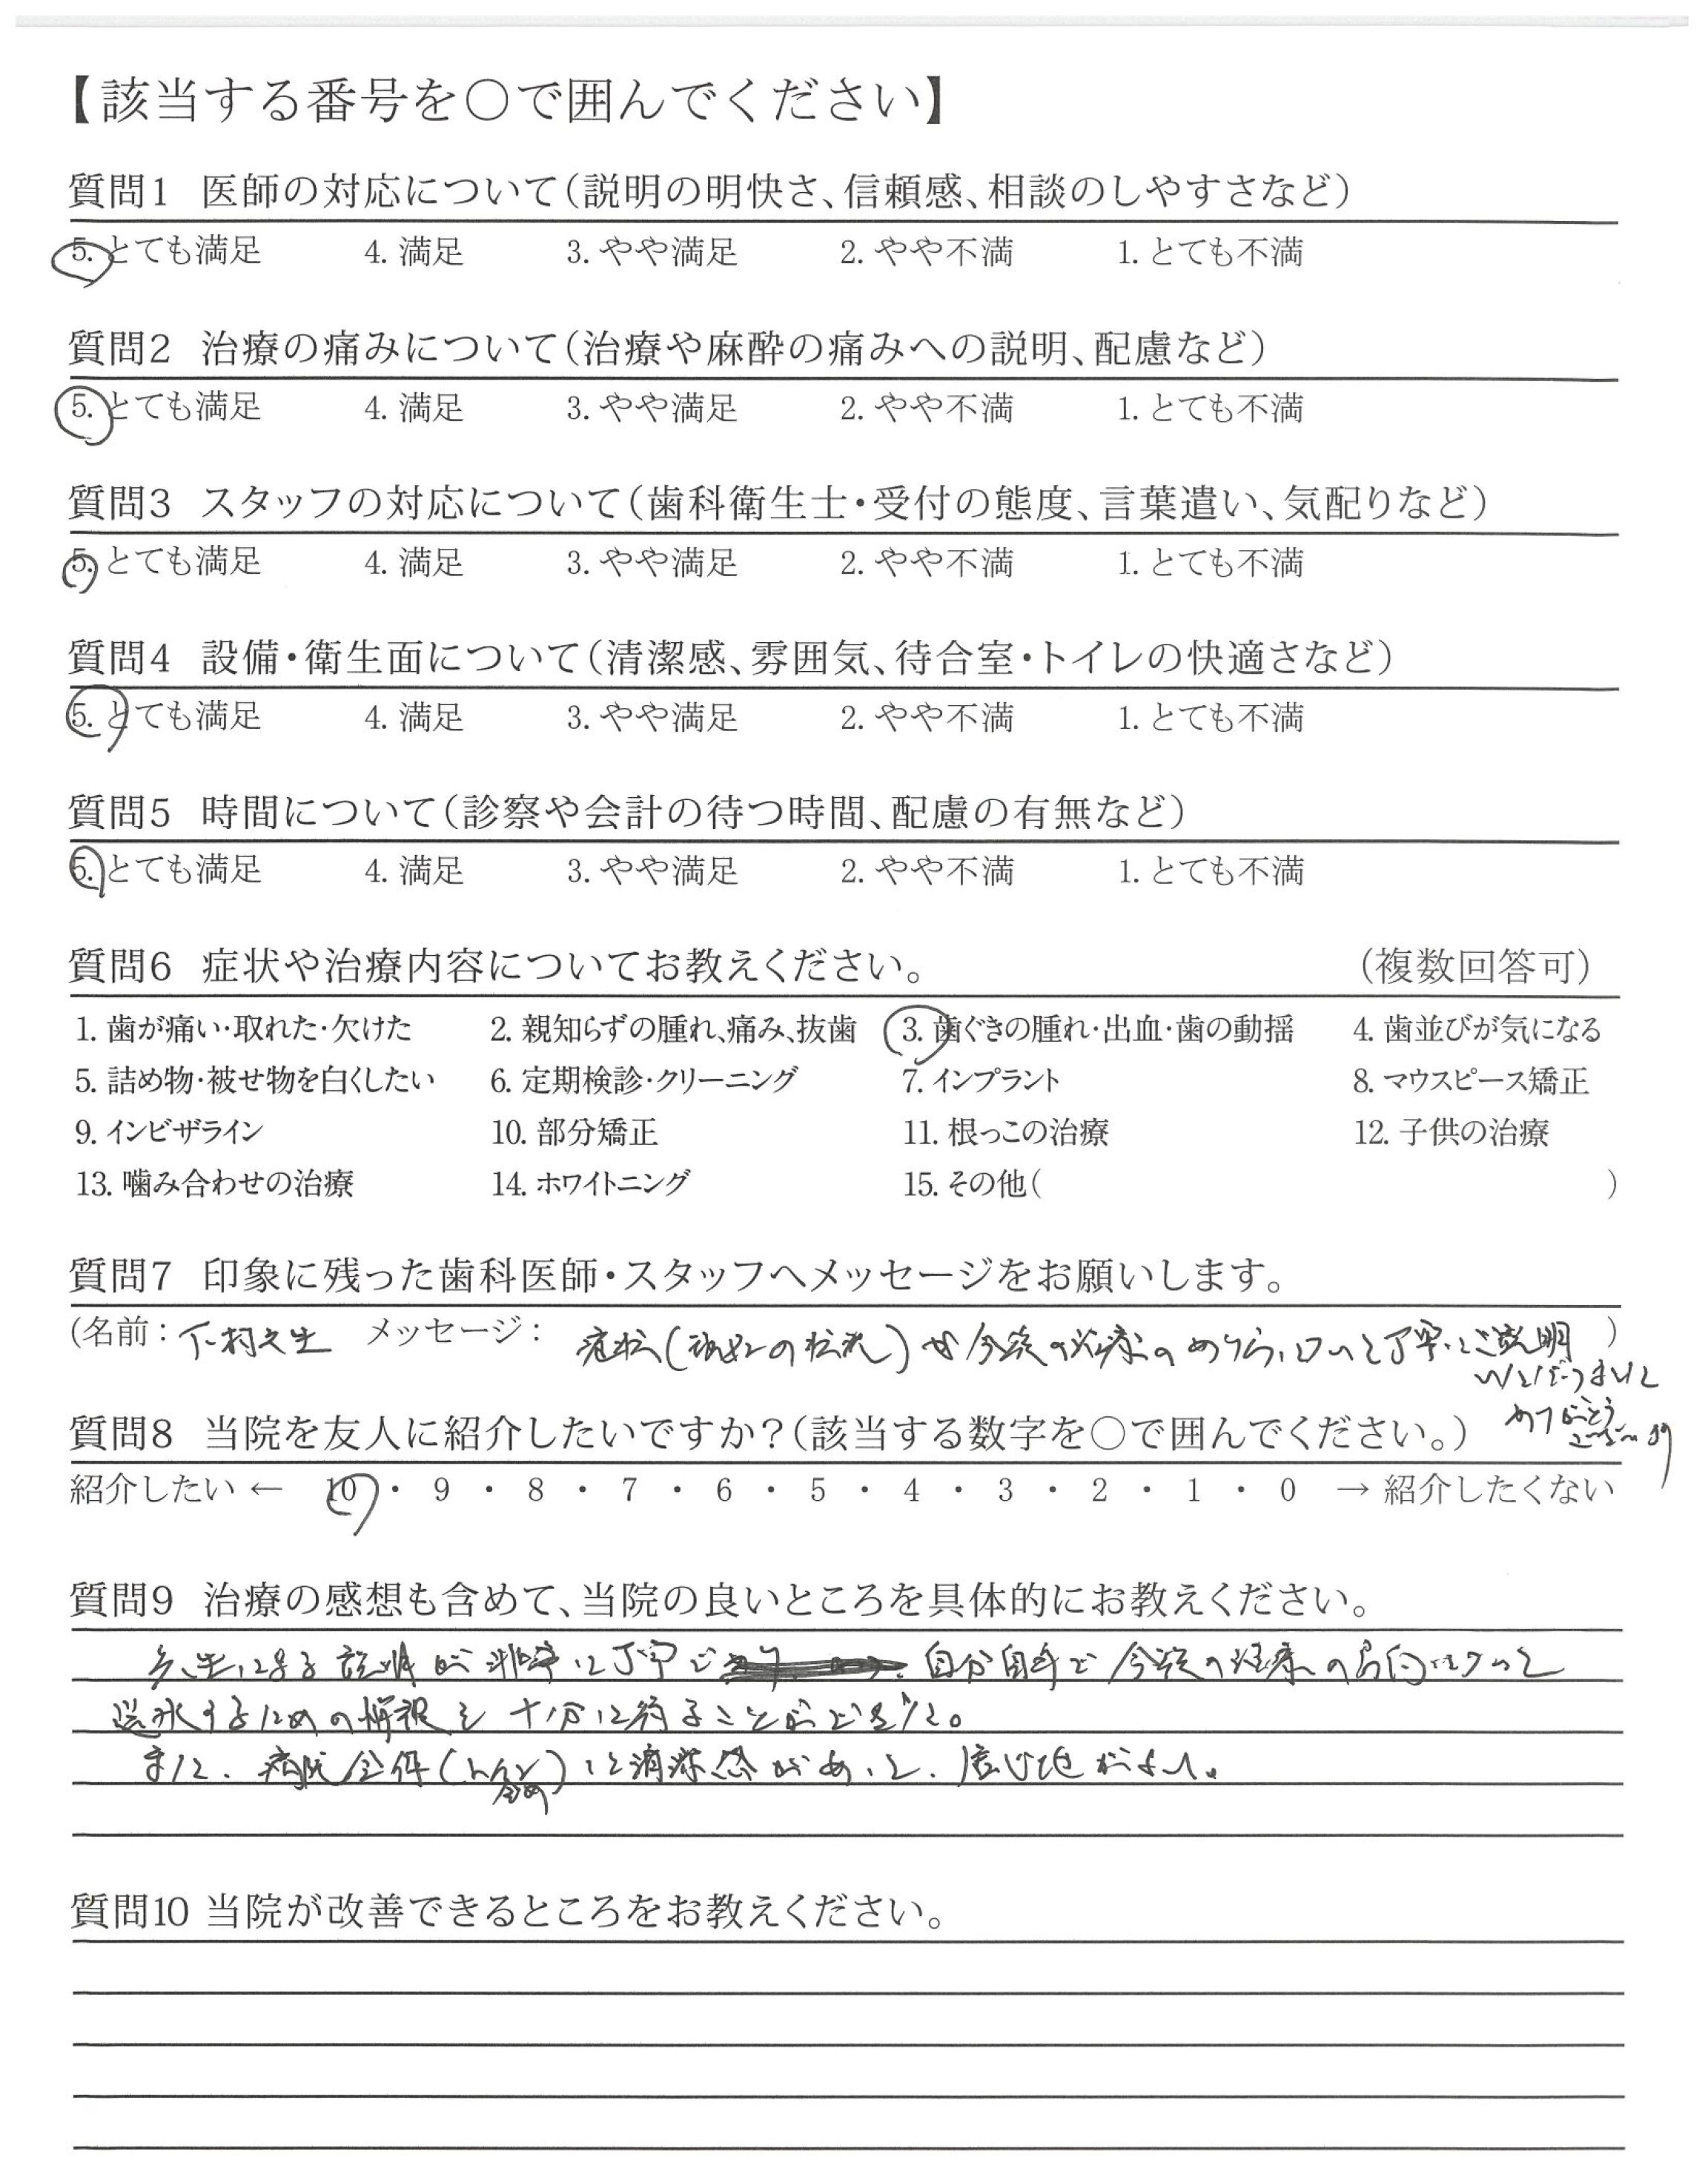 【該当する番号を○で囲んでください】
質問1 医師の対応について(説明の明快さ、信頼感、相談のしやすさなど)
5. とても満足 4. 満足 3. やや満足 2. やや不満 1. とても不満
質問2 治療の痛みについて(治療や麻酔の痛みへの説明、配慮など)
5. とても満足 4. 満足 3. やや満足 2. やや不満 1. とても不満
質問3 スタッフの対応について(歯科衛生士・受付の態度、言葉遣い、気配りなど)
5. とても満足 4. 満足 3. やや満足 2. やや不満 1. とても不満
質問4 設備・衛生面について(清潔感、雰囲気、待合室・トイレの快適さなど)
5. とても満足 4. 満足 3. やや満足 2. やや不満 1. とても不満
質問5 時間について(診察や会計の待つ時間、配慮の有無など)
5. とても満足 4. 満足 3. やや満足 2. やや不満 1. とても不満
質問6 症状や治療内容についてお教えください。 (複数回答可)
1. 歯が痛い・取れた・欠けた 2. 親知らずの腫れ、痛み、抜歯 3. 歯ぐきの腫れ・出血・歯の動揺 4. 歯並びが気になる
5. 詰め物・被せ物を白くしたい 6. 定期検診・クリーニング 7. インプラント 8. マウスピース矯正
9. インビザライン 10. 部分矯正 11. 根っこの治療 12. 子供の治療
13. 噛み合わせの治療 14. ホワイトニング 15. その他( )
質問7 印象に残った歯科医師・スタッフへメッセージをお願いします。
(名前: 下村先生 メッセージ: 症状(現在の状況)や今後の治療の 丁寧にご説明 )
いただきまして
ありがとう
ございます
質問8 当院を友人に紹介したいですか?(該当する数字を○で囲んでください。)
紹介したい ← 10 ・ 9 ・ 8 ・ 7 ・ 6 ・ 5 ・ 4 ・ 3 ・ 2 ・ 1 ・ 0 → 紹介したくない
質問9 治療の感想も含めて、当院の良いところを具体的にお教えください。
先生による説明が非常に丁寧で 自分自身で今後の治療の方向について
選択するための情報を十分に得ることができた。
また、病院全体(トイレ含め)に清潔感があって、居心地がよい。
質問10 当院が改善できるところをお教えください。